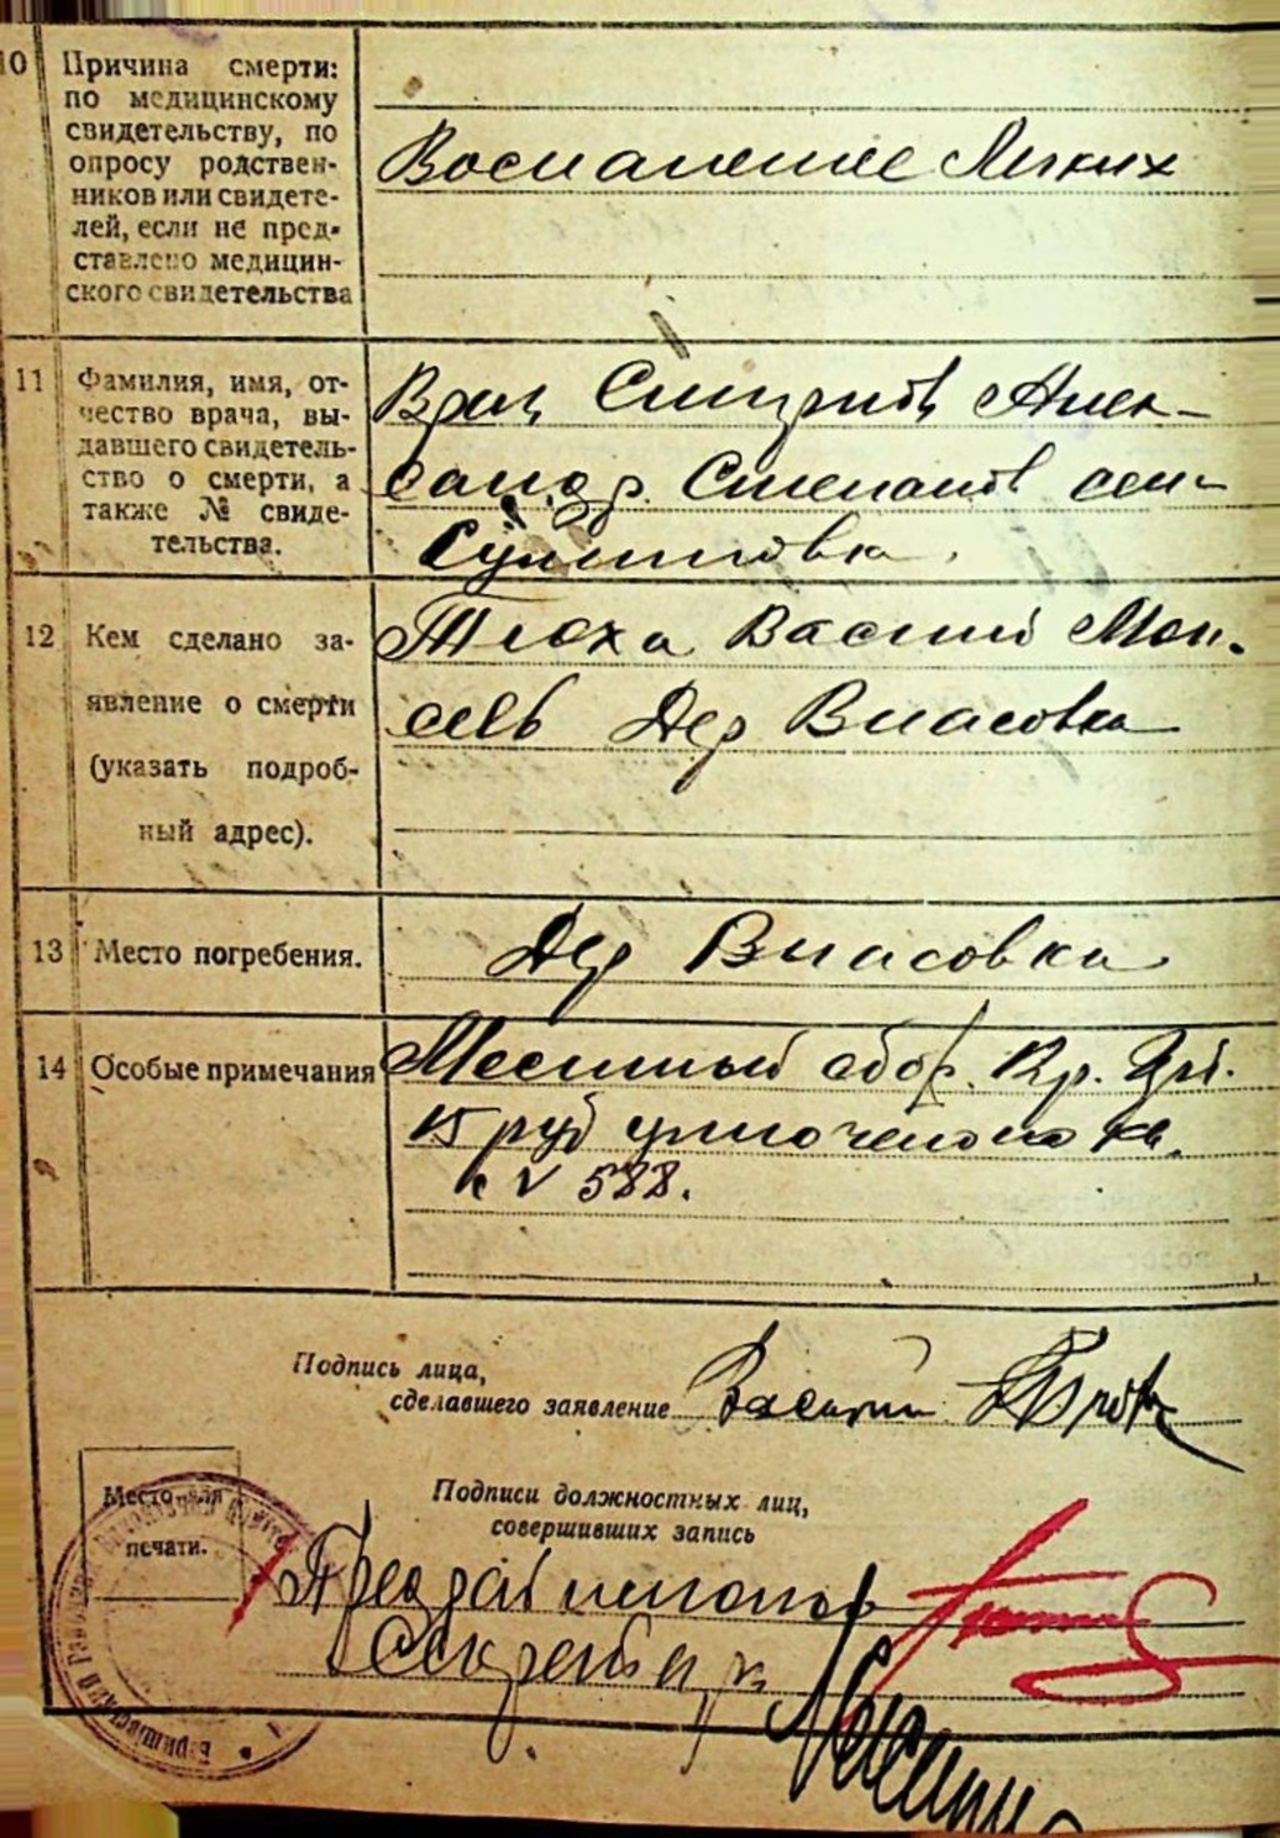 10 Причина смерти:
по медицинскому
свидетельству, по
опросу родствен-
ников или свидете-
лей, если не пред-
ставлено медицин-
ского свидетельства
Воспаление Легких
11 Фамилия, имя, от-
чество врача, вы-
давшего свидетель-
ство о смерти, а
также № свиде-
тельства.
Врач Смирнов Алек-
сандр. Степанов
12 Кем сделано за-
явление о смерти
(указать подроб-
ный адрес).
Василий
Дер Власовка
13 Место погребения.
Дер Власовка
14 Особые примечания
Местный сбор.
15 руб
588.
Подпись лица,
сделавшего заявление
Василий
Место для
печати.
Подписи должностных лиц,
совершивших запись
Секретарь